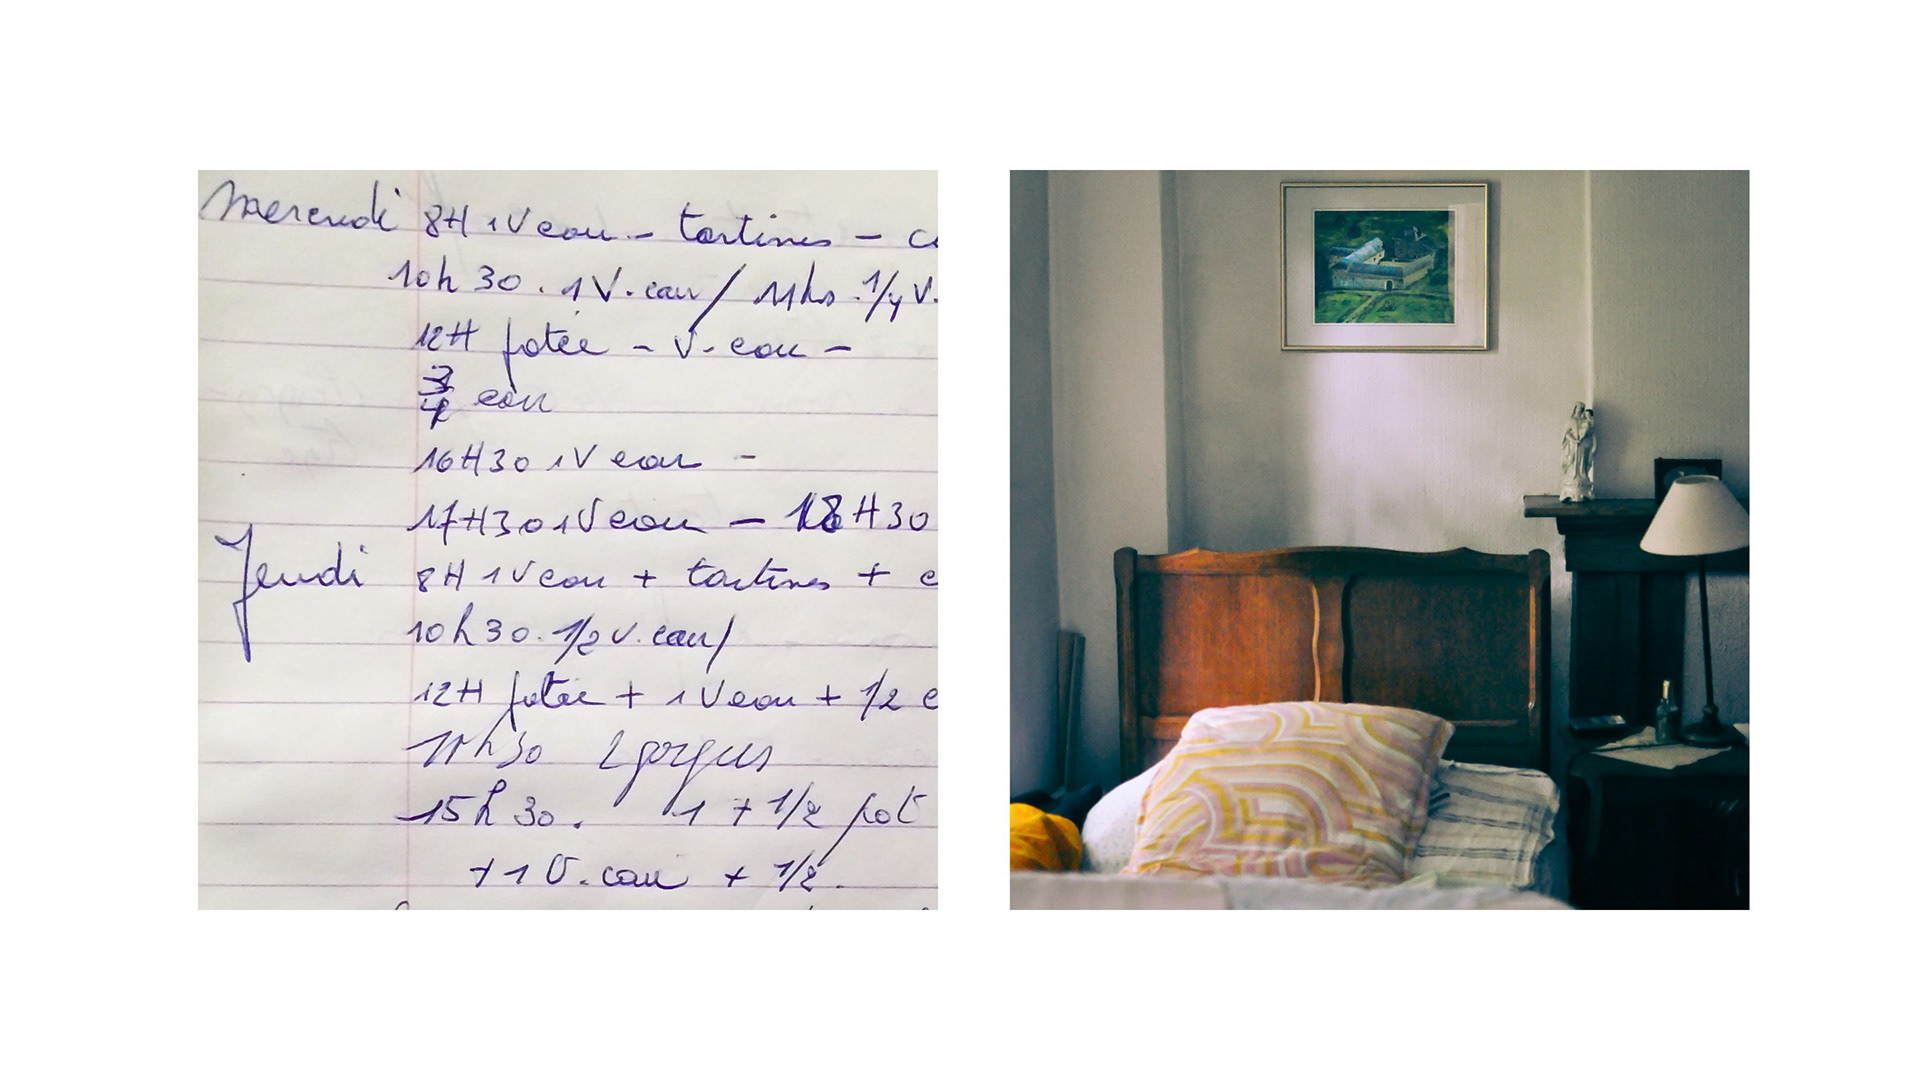 Mercredi 8H 1V eau - tartines - c
10h30. 1V. eau / 11hs. 1/4 V.
12H potée - V. eau -
3/4 eau
16H30 1V eau -
17H30 1V eau - 18H30
Jeudi 8H 1V eau + tartines + c
10h30. 1/2 V. eau/
12H potée + 1V eau + 1/2 e
h30 2 gorgées
15h30. 1 + 1/2 pot
+ 1 V. eau + 1/2.